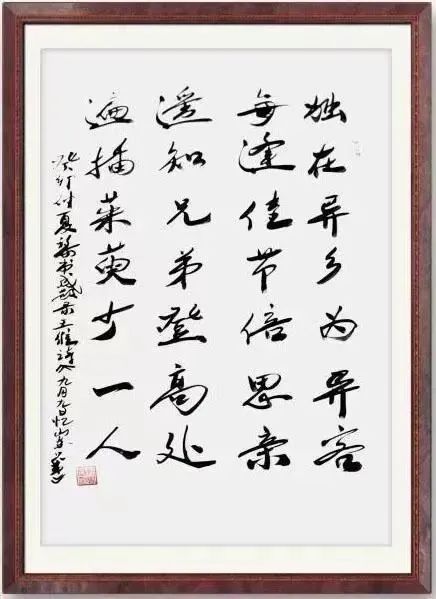 独在异乡为异客
每逢佳节倍思亲
遥知兄弟登高处
遍插茱萸少一人
夏 书 录王维诗 九月九日忆山东兄弟